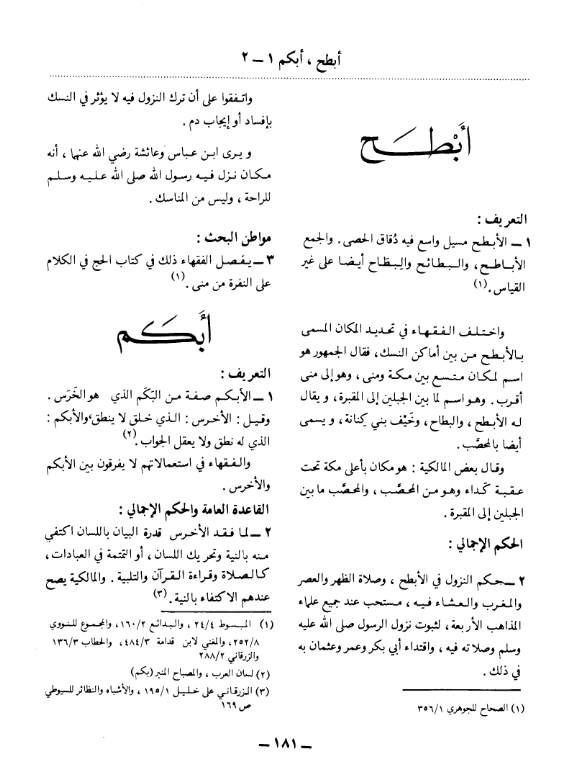 أبطح ، أبكم ١ – ٢
أَبْطَح
التعريف :
١ – الأبطح مسيل واسع فيه دُقاق الحصى . والجمع
الأباطح ، والبطائح والبِطَاح أيضا على غير
القياس . (١)
واختلف الفقهاء في تحديد المكان المسمى
بالأبطح من بين أماكن النسك ، فقال الجمهور هو
اسم لمكان متسع بين مكة ومنى ، وهو إلى منى
أقرب . وهو اسم لما بين الجبلين إلى المقبرة ، و يقال
له الأبطح ، والبطاح ، وخَيْف بني كِنانة ، و يسمى
أيضا بالمحصَّب .
وقال بعض المالكية : هو مكان بأعلى مكة تحت
عقبة كَداء وهو من المحصَّب ، والمحصَّب ما بين
الجبلين إلى المقبرة .
الحكم الإجمالي :
٢ – حكم النزول في الأبطح ، وصلاة الظهر والعصر
والمغرب والعشاء فيه ، مستحب عند جميع علماء
المذاهب الأربعة ، لثبوت نزول الرسول صلى الله عليه
وسلم وصلاته فيه ، واقتداء أبي بكر وعمر وعثمان به
في ذلك .
(١) الصحاح للجوهري ٣٥٦/١
واتفقوا على أن ترك النزول فيه لا يؤثر في النسك
بإفساد أو إيجاب دم .
و يرى ابن عباس وعائشة رضي الله عنهما ، أنه
مكان نزل فيه رسول الله صلى الله عليه وسلم
للراحة ، وليس من المناسك .
مواطن البحث :
٣ – يفصل الفقهاء ذلك في كتاب الحج في الكلام
على النفرة من منى . (١)
أَبكَم
التعريف :
١ – الأبكم صفة من البَكَم الذي هو الخَرَس .
وقيل : الأخرس : الذي خلق لا ينطق ، والأبكم :
الذي له نطق ولا يعقل الجواب . (٢)
والفقهاء في استعمالاتهم لا يفرقون بين الأبكم
والأخرس .
القاعدة العامة والحكم الإجمالي :
٢ – لما فقد الأخرس قدرة البيان باللسان اكتفي
منه بالنية وتحريك اللسان ، أو التمتمة في العبادات ،
كالصلاة وقراءة القرآن والتلبية . والمالكية يصح
عندهم الاكتفاء بالنية . (٣)
(١) المبسوط ٢٤/٤ ، والبدائع ١٦٠/٢ ، والمجموع للنووي
٢٥٢/٨ ، والمغني لابن قدامة ٤٨٤/٣ ، والحطاب ١٣٦/٣
والزرقاني ٢٨٨/٢
(٢) لسان العرب ، والمصباح المنير (بكم)
(٣) الزرقاني على خليل ١٩٥/١ ، والأشباه والنظائر للسيوطي
ص ١٦٩
– ١٨١ –